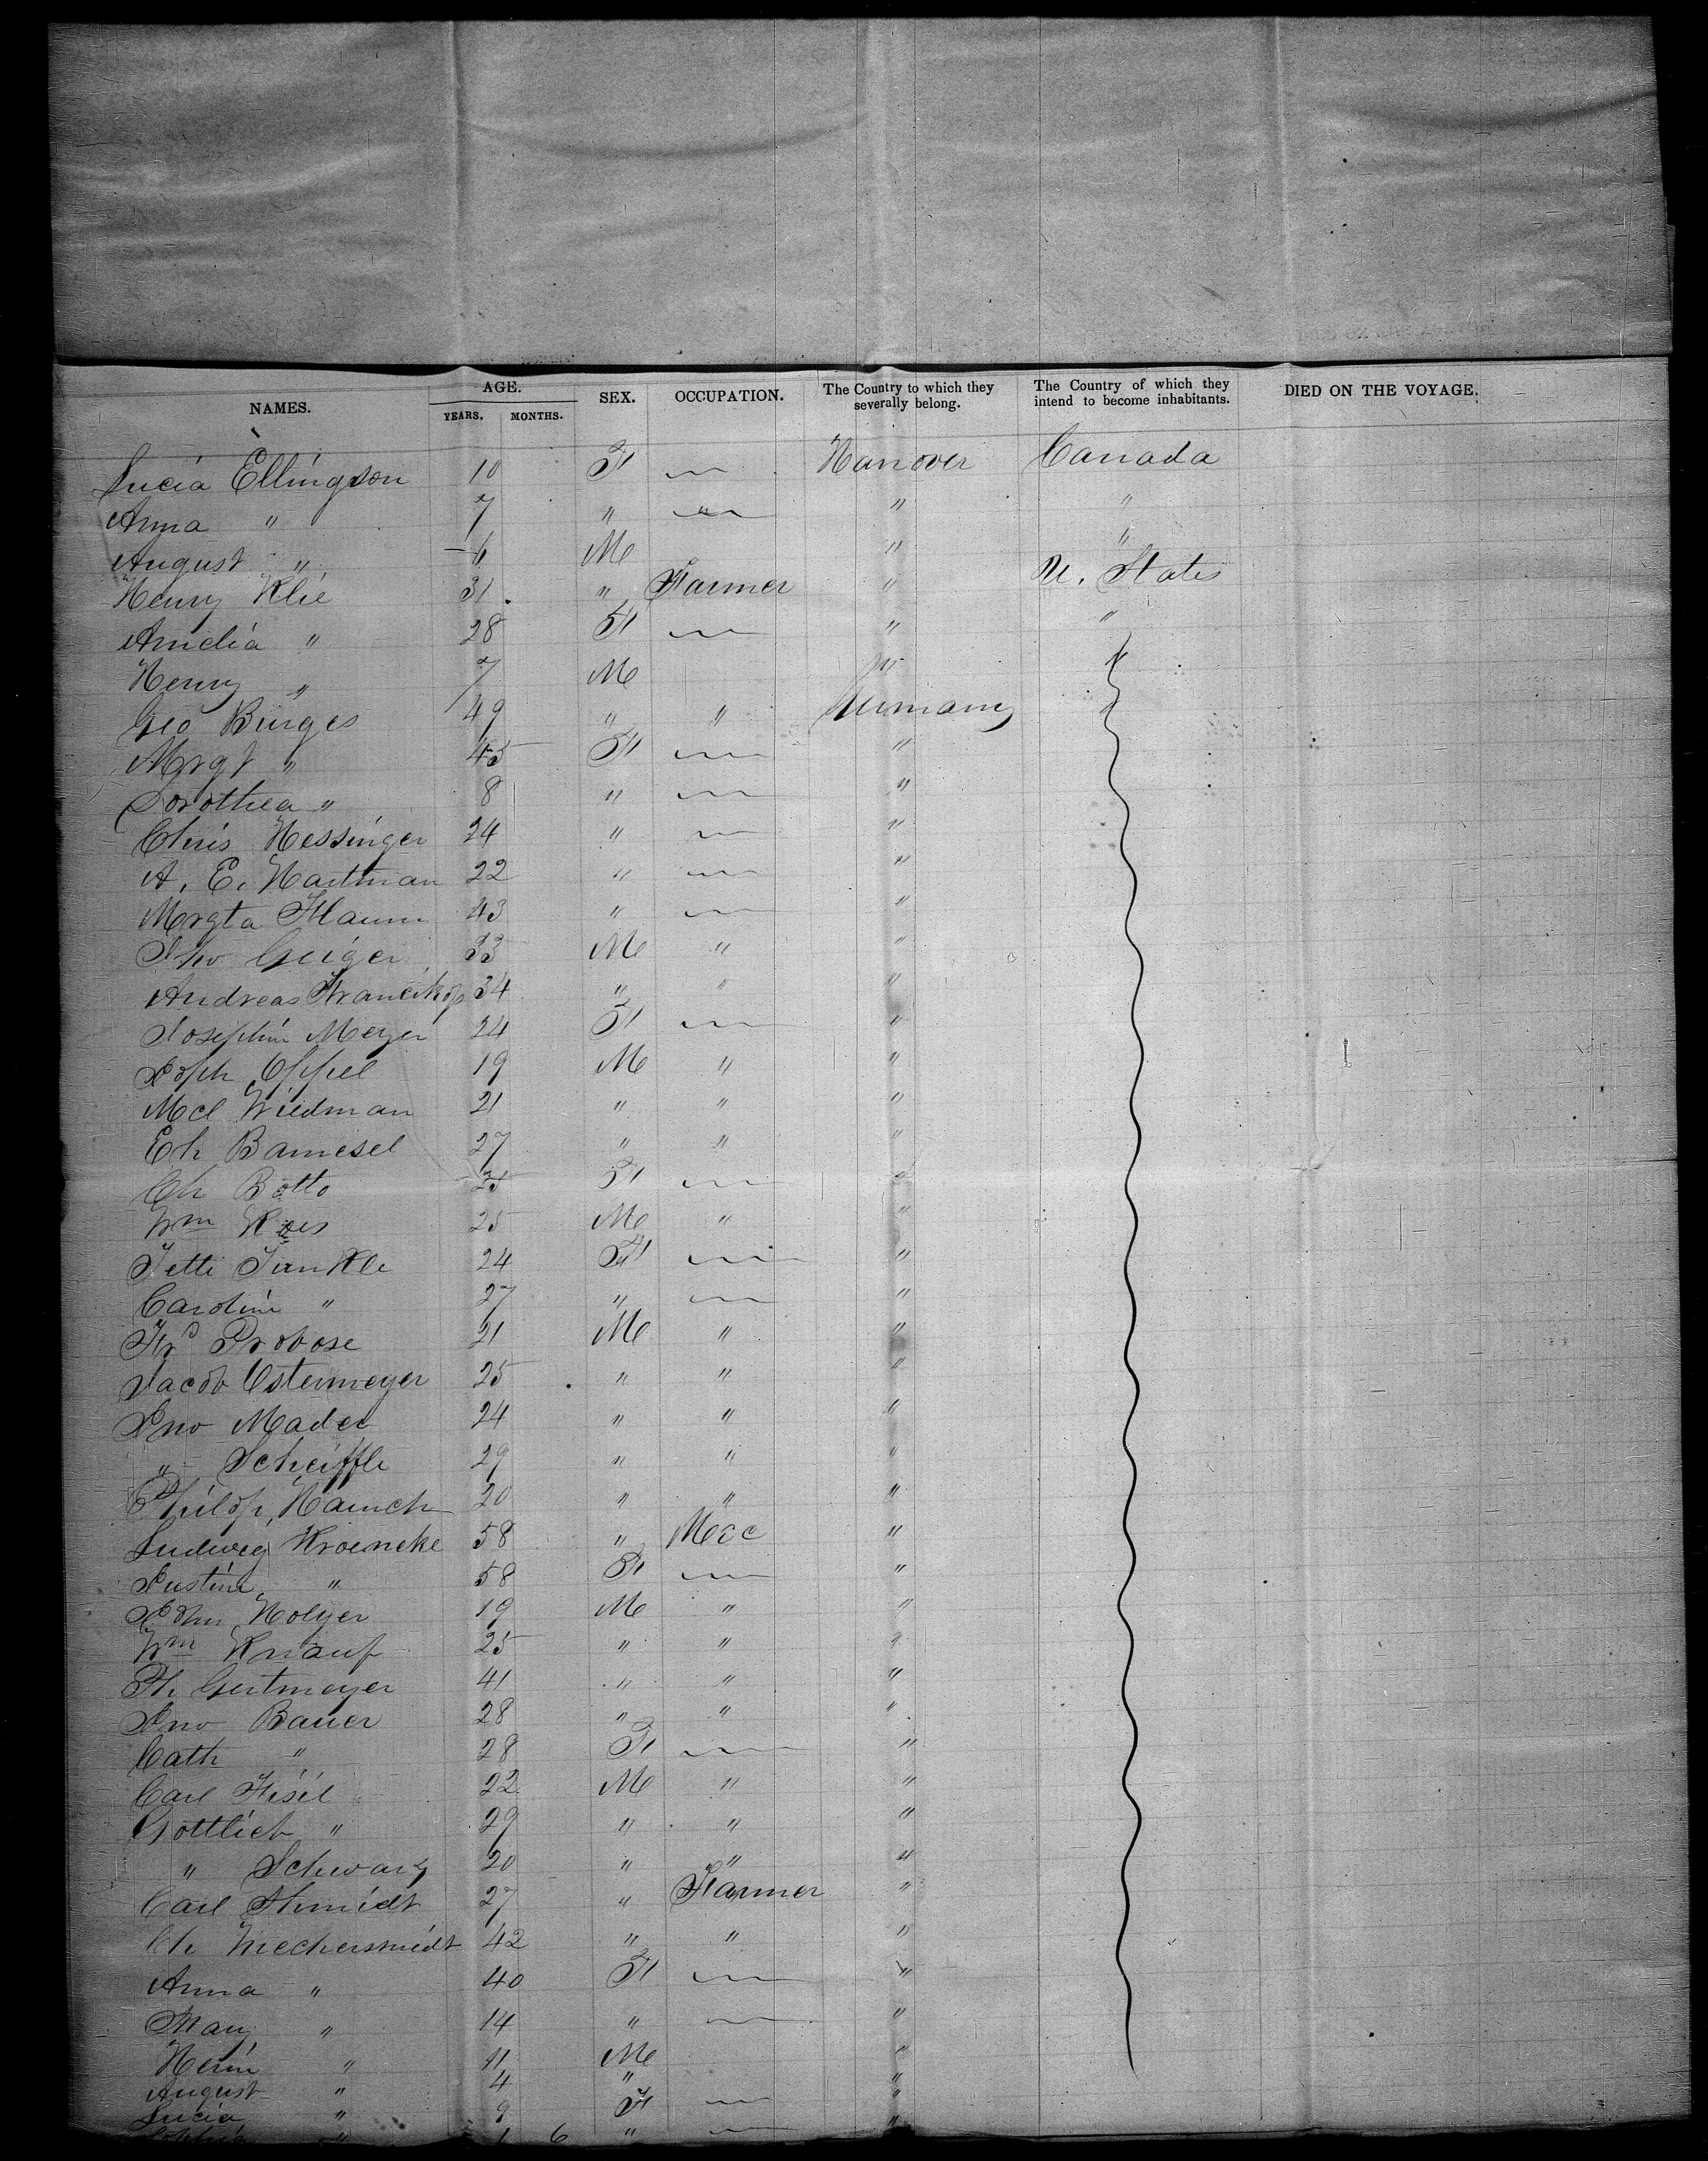 NAMES. AGE. YEARS. MONTHS. SEX. OCCUPATION. The Country to which they severally belong. The Country of which they intend to become inhabitants. DIED ON THE VOYAGE.
Lucia Ellingson 10 F — Hanover Canada
Anna " 7 " — " "
August " 6 M " "
Henry Klie 31 " Farmer " U. States
Amelia " 28 F — " "
Henry " 7 M "
Geo Burges 49 " " Germany
Mrgt " 45 F — "
Dorothea " 8 " — "
Chris Hessinger 24 " — "
A. E. Hartman 22 " — "
Mrgta 43 " — "
Jno Geiger 33 M " "
Andreas 34 " " "
Josephin Meyer 24 F — "
Joph Oppel 19 M " "
Mcl Wiedman 21 " " "
Ch Bamesel 27 " " "
Ch Botto 25 F — "
Wm 25 M " "
Jette Junkle 24 F — "
Carolin " 27 " — "
Frd Probose 21 M " "
Jacob Ostermeyer 25 " " "
Jno Mader 24 " " "
" Scheiffle 29 " " "
Philop Hamch 20 " " "
Ludweg Kroencke 58 " Mec "
Justine " 58 F — "
John Holyer 19 M " "
Wm Knauf 25 " " "
Ph Gertmeyer 41 " " "
Jno Bauer 28 " " "
Cath " 28 F — "
Carl Fisel 22 M " "
Gottlieb " 29 " " "
" Schwarz 20 " " "
Carl Shmidt 27 " Farmer "
Ch 42 " " "
Anna " 40 F — "
Mary " 14 " — "
Herm " 11 M "
August " 4 " "
Lucia " 9 F — "
Sophia " 1 6 " — "